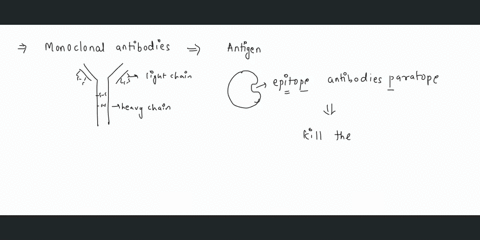 ⇒ Monoclonal antibodies ⇒ Antigen
light chain
epitope antibodies paratope
heavy chain
⇓
kill the